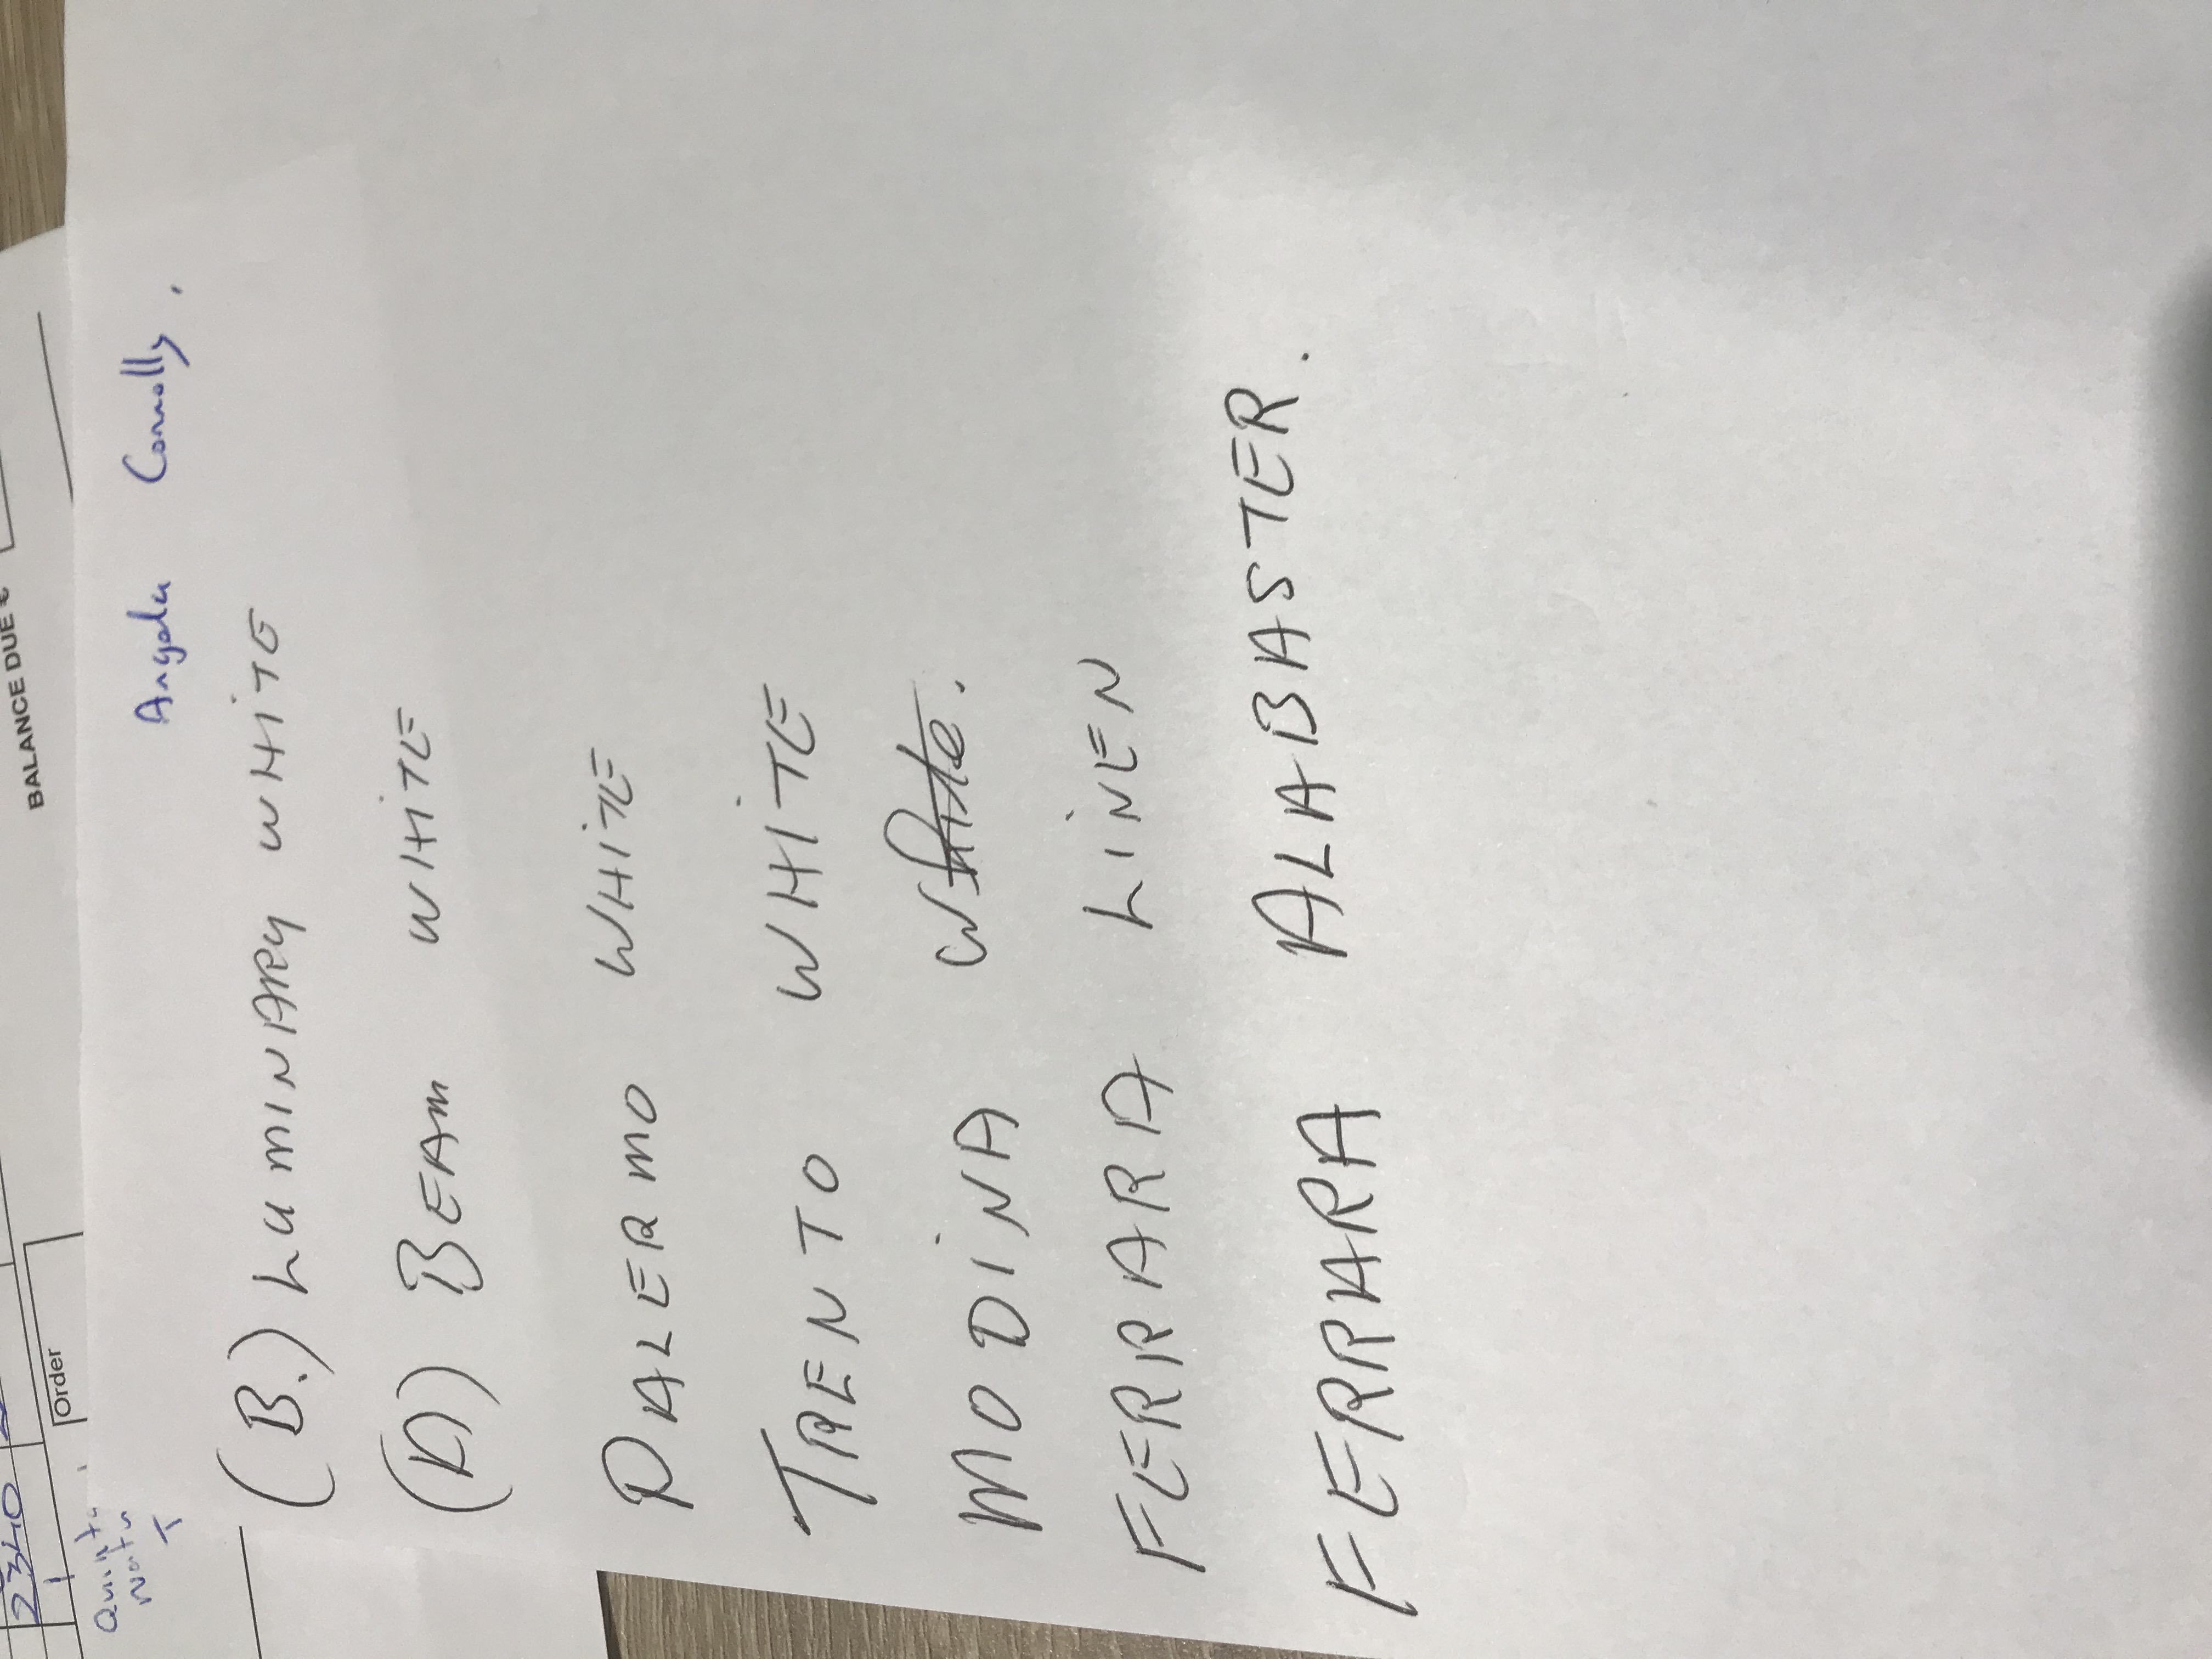 BALANCE DUE £
2340
1
Order
Angela Connolly.
(B.) LUMINARY WHITE
(D) BEAM WHITE
PALERMO WHITE
TRENTO WHITE
MODINA White.
FERRARA LINEN
FERRARA ALABASTER.